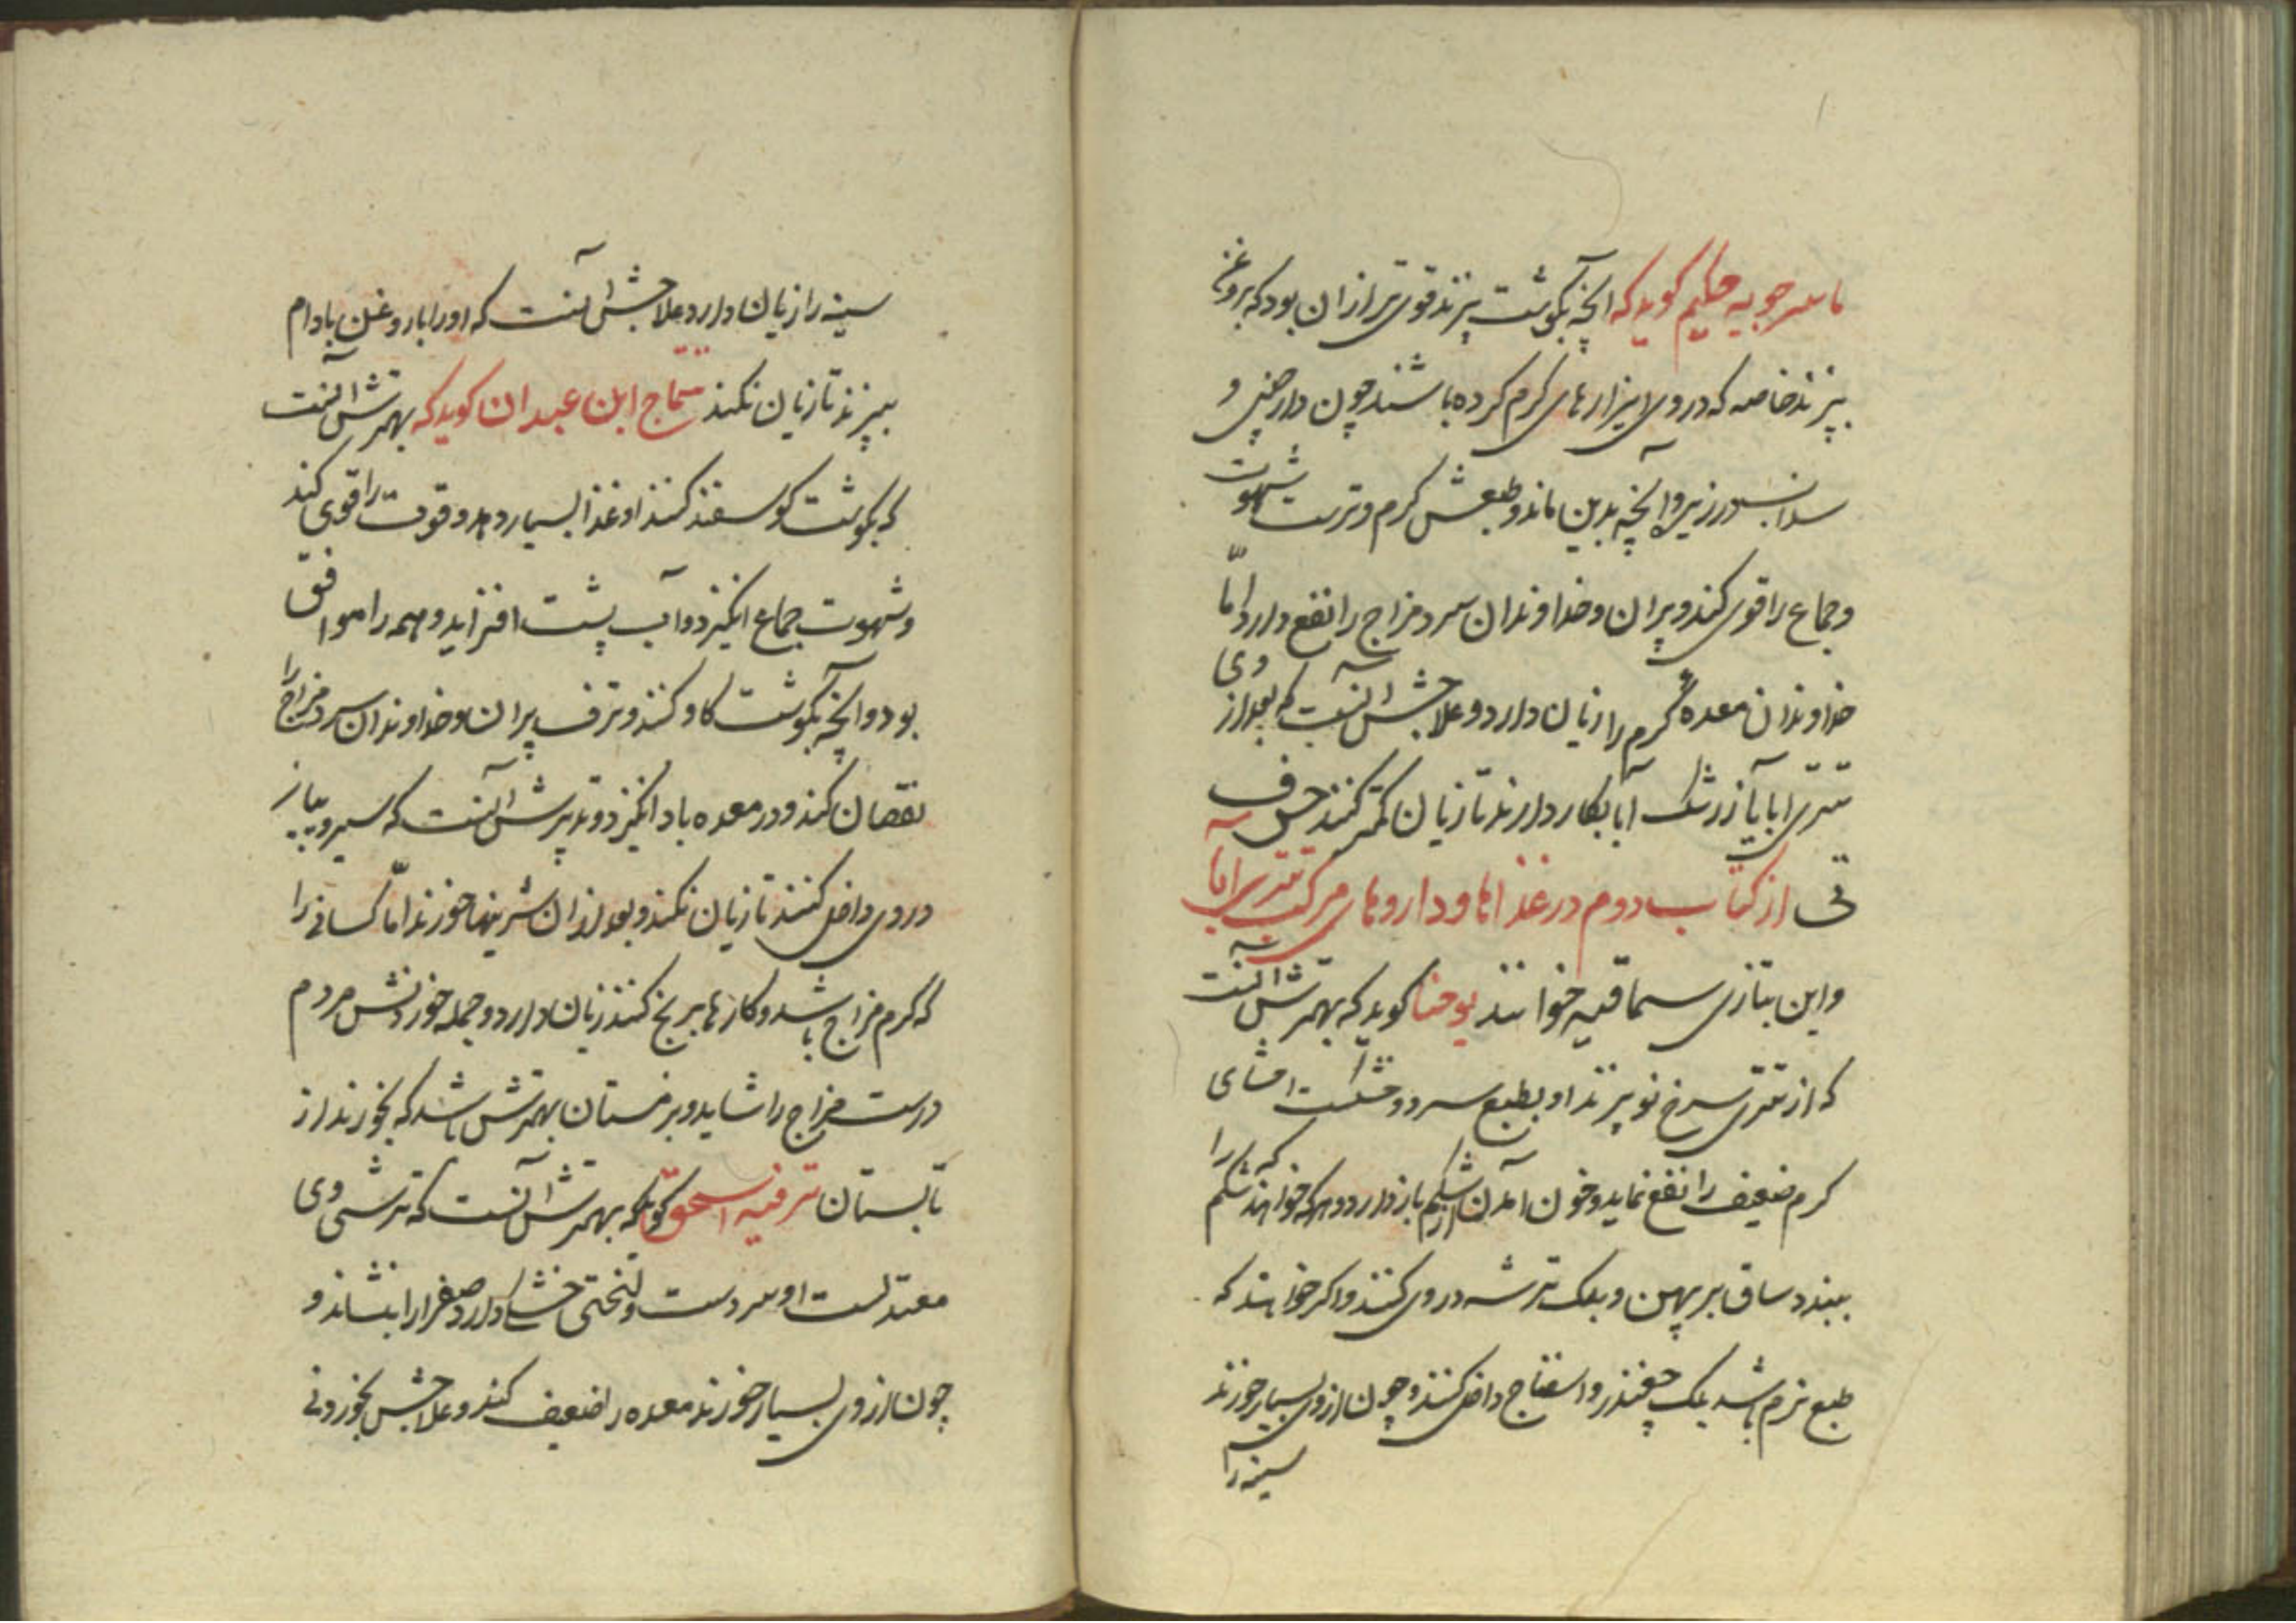 ماسرجویه حکیم کوید که انچه بکوشت پزند قوی تر از ان بود که بروغن
پزند خاصه که در وی ابزارهای کرم کرده باشند چون دارچینی و
سداب و زیره و انچه بدین ماند و طبعش کرم و ترست شهوت
و جماع را قوی کند و پیران و خداوندان سرد مزاج را نفع دارد و امّا
خداوندان معده گرم را زیان دارد و علاجش آنست که بعد از وی
تتری ابا یا زرشک آبا بکار دارند تا زیان کمتر کنند حرف
تی از کتاب دوم در غذاها و داروهای مرکب تتری ابا
و این بتازی سماقیه خوانند یوحنا کوید که بهترش آنست
که از تتری سرخ نو پزند او بطبع سرد و خشکست امشای
کرم ضعیف را نفع نماید و خون امدن از شکم باز دارد و هرکه خواهد که شکم را
ببندد ساق بربهن و بلک ترشه در وی کنند و اکر خواهند که
طبع نرم باشد بلک چغندر و اسفناج داخل کنند و چون از وی بسیار خورند
سینه را
سینه را زیان دارد و علاجش آنست که او را با روغن بادام
بپزند تا زیان نکند تتماج ابن عبدان کوید که بهترش آنست
که بکوشت کوسفند کنند او غذا بسیار دهد و قوت را قوی کند
و شهوت جماع انکیزد و آب پشت افزاید و همه را موافق
بود و انچه بکوشت کاو کنند و ترف پیران و خداوندان سرد مزاج را
نقصان کند و در معده باد انکیزد و تدبیرش آنست که سیر و پیاز
در وی داخل کنند تا زیان نکند و بعد از ان شیرینیها خورند امّا کسانی را
که کرم مزاج باشد و کارها برنج کنند زیان دارد و جمله خوردنش مردم
درست مزاج را شاید و بزمستان بهترش باشد که بخورند از
تابستان ترفینه اسحق کوید که بهترش آنست که ترشی وی
معتدلست او سردست و لختی خشکی دارد صفرا را بنشاند و
چون از وی بسیار خورند معده را ضعیف کند و علاجش بخوردنی